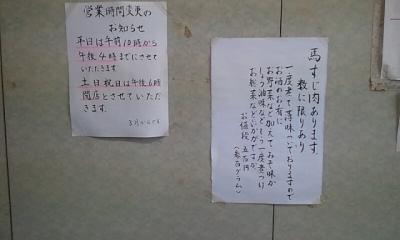 営業時間変更の
お知らせ
平日は午前10時から
午後4時までにさせて
いただきます
土日祝日は午後6時
閉店とさせていただ
きます。
3月からです
馬すじ肉あります。
数に限りあり
一度煮て薄味ついておりますので
お酒のお肴に
お野菜など加えておみそ味か
しょう油味などでもう一度煮つけ
お惣菜などにいかがですか
お値段 五百円